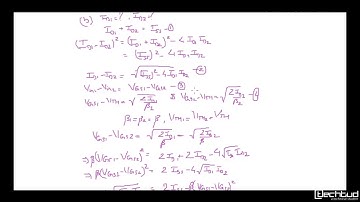 (b) I_D1 = ?, I_D2
I_D1 + I_D2 = I_SS —①
(I_D1 - I_D2)² = (I_D1 + I_D2)² - 4 I_D1 I_D2
= (I_SS)² - 4 I_D1 I_D2
I_D1 - I_D2 = √(I_SS)² - 4 I_D1 I_D2 —②
V_in1 - V_in2 = V_GS1 - V_GS2 —③
V_GS1 - V_TH1 = √(2 I_D1/β_1) & V_GS2 - V_TH2 = √(2 I_D2/β_2) —④
β_1 = β_2 = β, V_TH1 = V_TH2 = V_TH
V_GS1 - V_GS2 = √(2 I_D1/β) - √(2 I_D2/β)
⇒ β(V_GS1 - V_GS2)² = 2 I_D1 + 2 I_D2 - 4√(I_D1 I_D2)
⇒ β(V_GS1 - V_GS2)² = 2 I_SS - 4√(I_D1 I_D2)
techtud